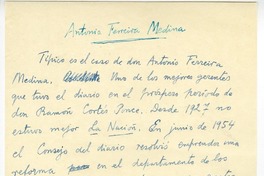 Antonio Ferreira Medina
Típico es el caso de don Antonio Ferreira
Medina. Uno de los mejores gerentes
que tuvo el diario en el próspero período de
don Ramón Cortés Ponce. Desde 1927 no
estuvo mejor La Nación. En junio de 1954
el Consejo del diario resolvió emprender una
reforma en el departamento de los